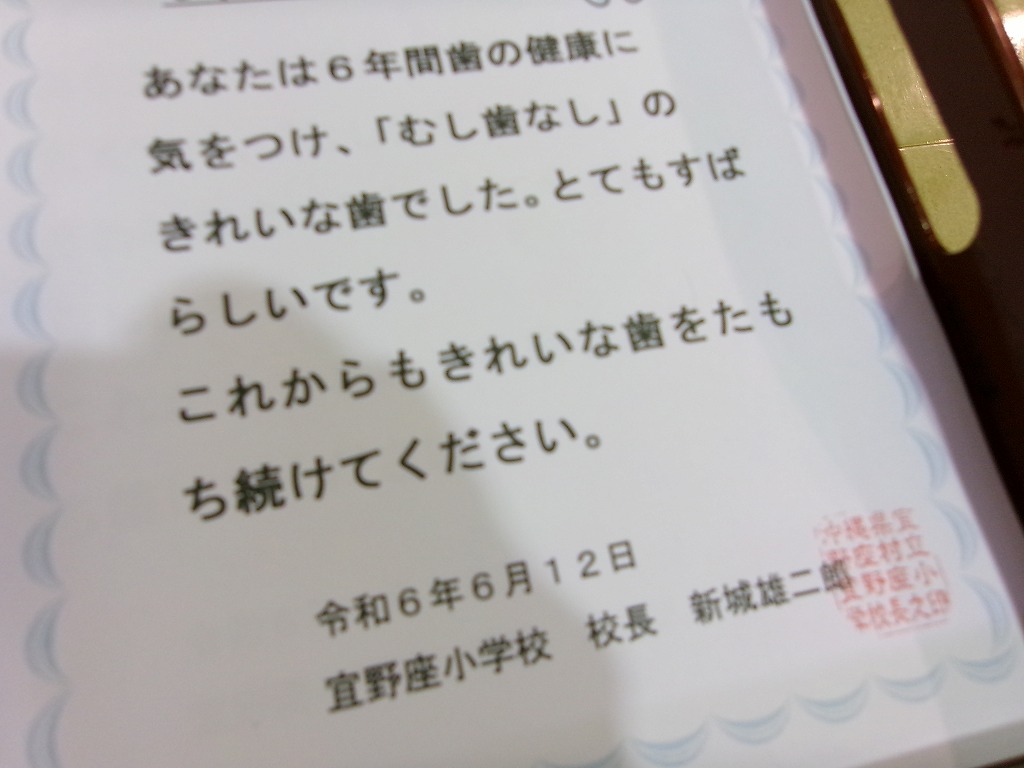 あなたは６年間歯の健康に
気をつけ、「むし歯なし」の
きれいな歯でした。とてもすば
らしいです。
これからもきれいな歯をたも
ち続けてください。
令和６年６月１２日
宜野座小学校　校長　新城雄二郎
沖縄県宜
野座村立
宜野座小
学校長之印